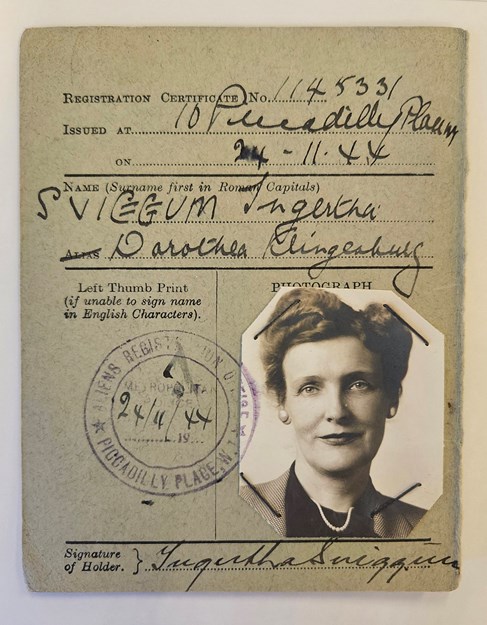 REGISTRATION CERTIFICATE No. 1145331
ISSUED AT 10 Piccadilly Place W1
ON 24-11-44
NAME (Surname first in Roman Capitals)
SVIGGUM Ingertha
ALIAS Dorothea Klingenburg
Left Thumb Print
(if unable to sign name
in English Characters).
PHOTOGRAPH
ALIENS REGISTRATION
METROPOLITAN
24/11/44
19
PICCADILLY PLACE W.1
Signature
of Holder.
Ingertha Sviggum